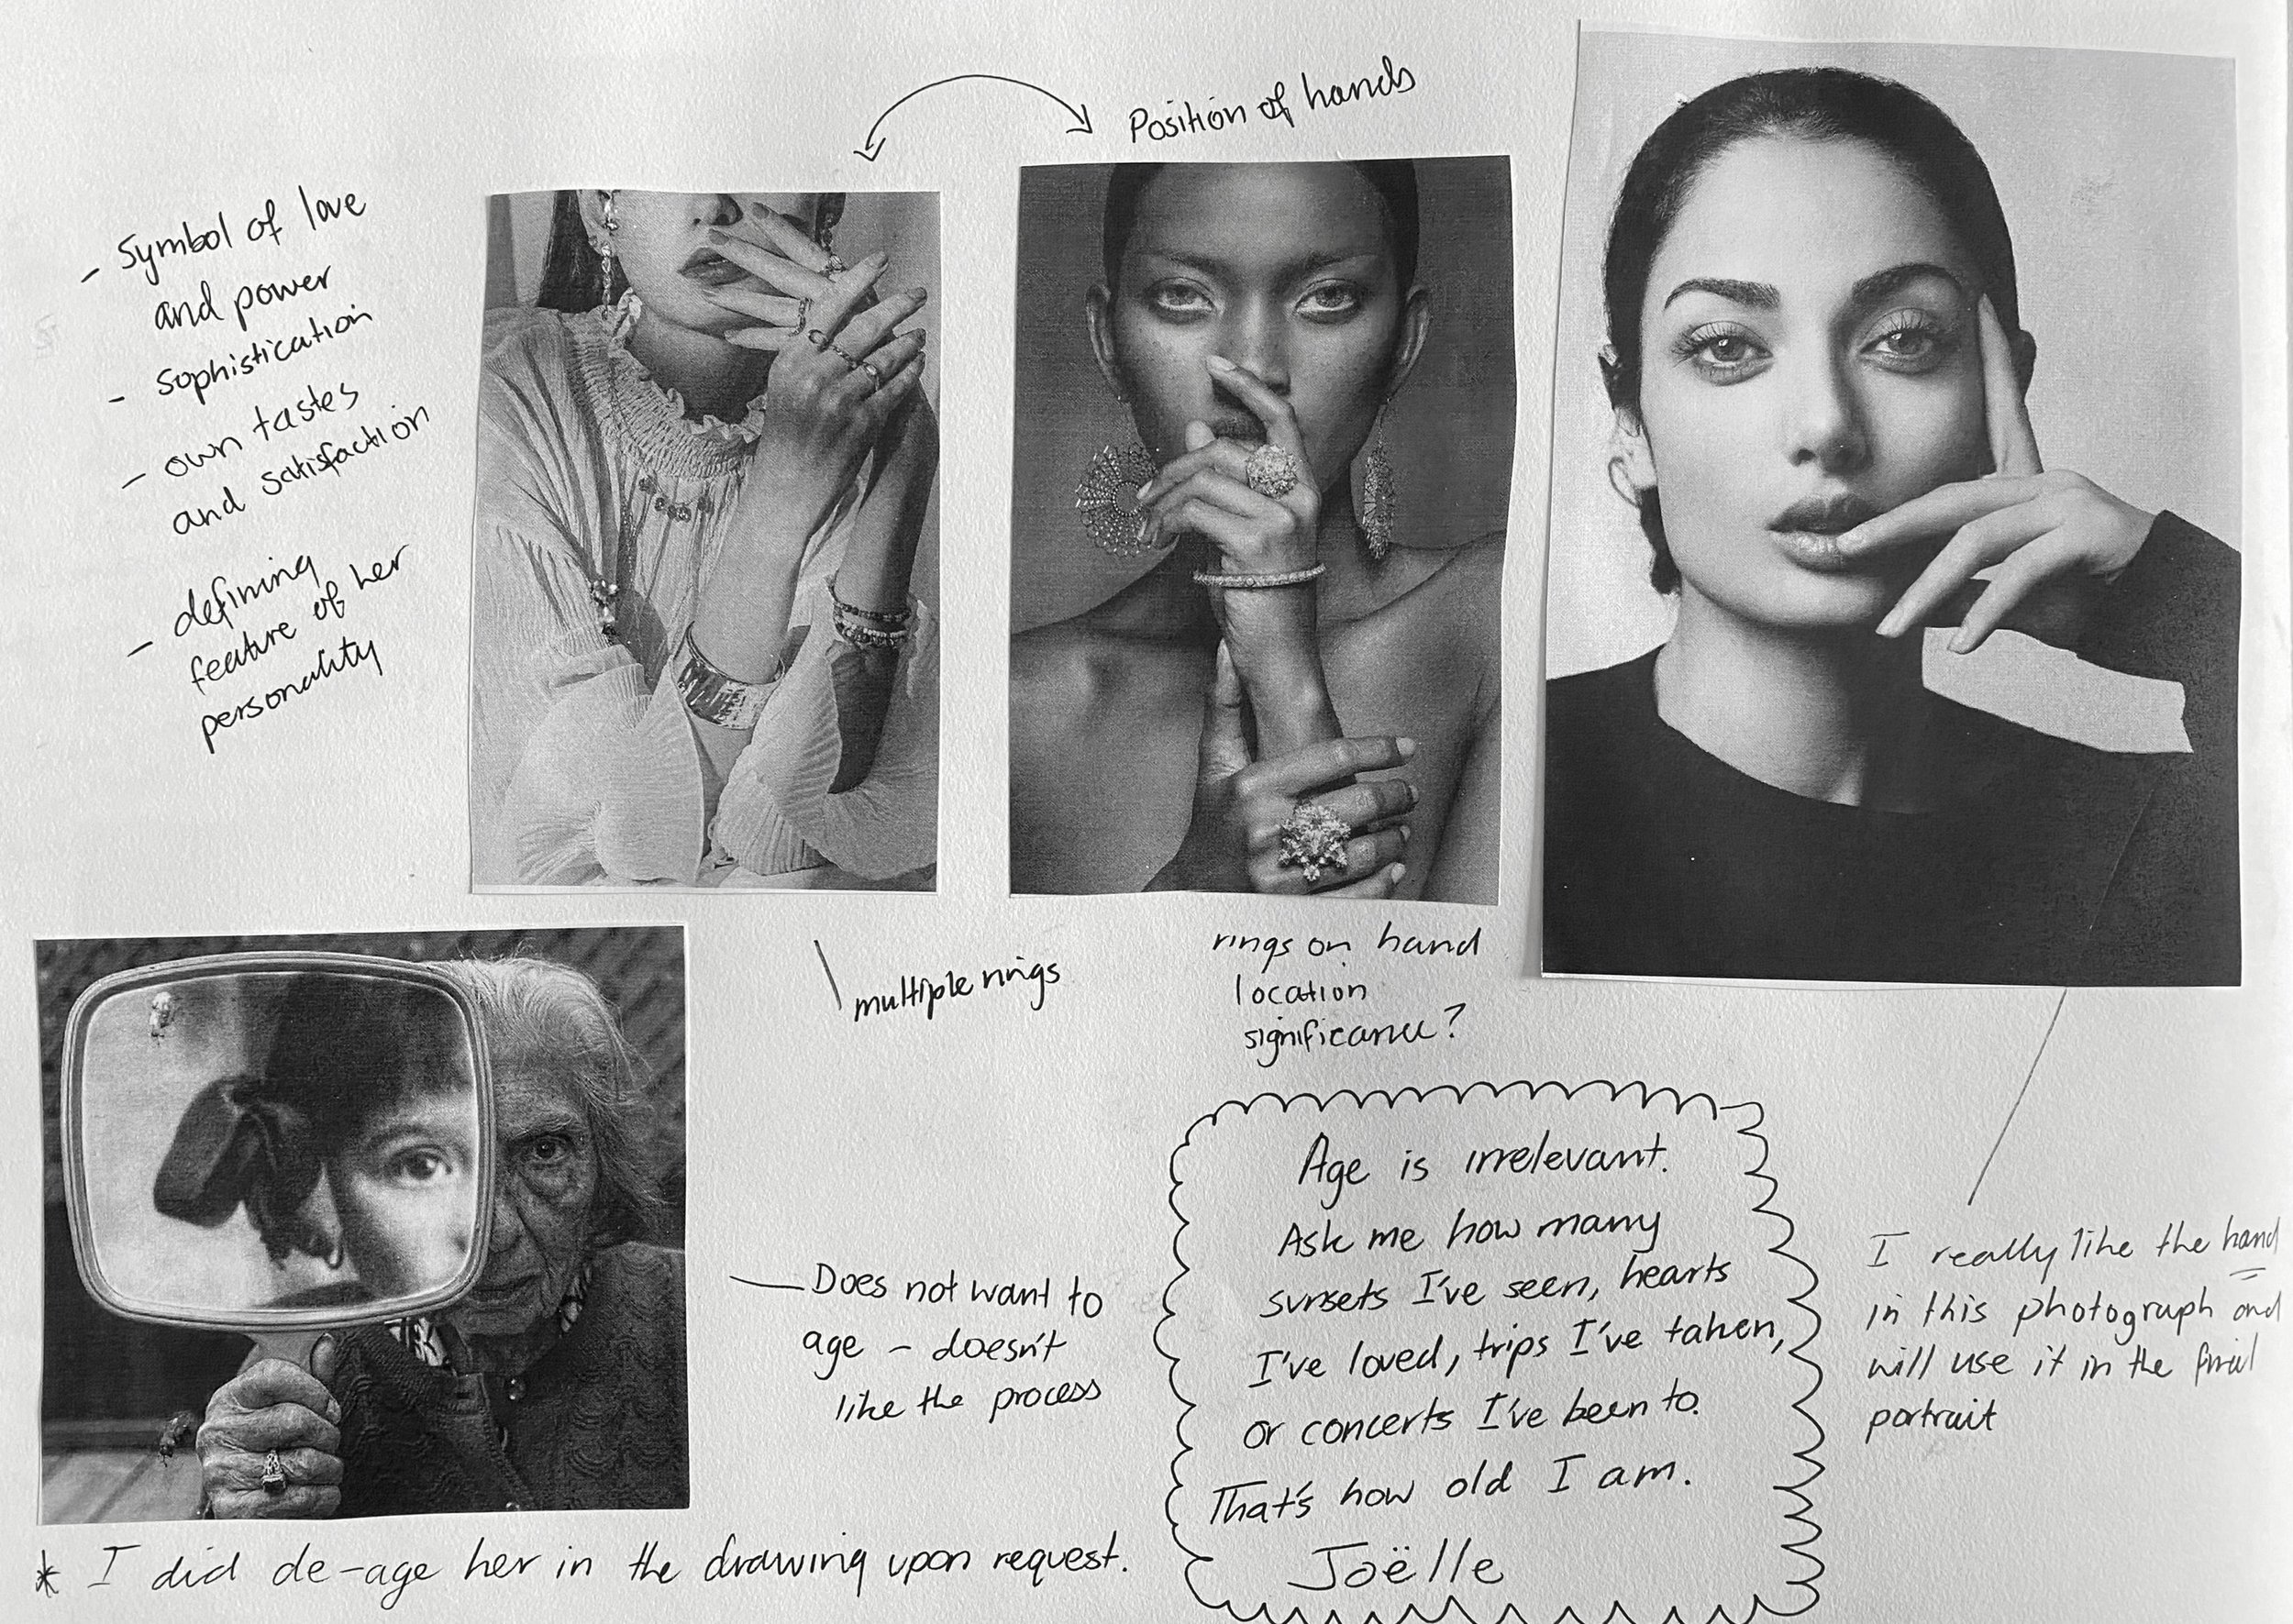 Position of hands
- Symbol of love
and power
- sophistication
- own tastes
and satisfaction
- defining
feature of her
personality
multiple rings
rings on hand
location
significance?
Does not want to
age - doesn't
like the process
Age is irrelevant.
Ask me how many
sunsets I've seen, hearts
I've loved, trips I've taken,
or concerts I've been to.
That's how old I am.
Joëlle
I really like the hand
in this photograph and
will use it in the final
portrait
* I did de-age her in the drawing upon request.